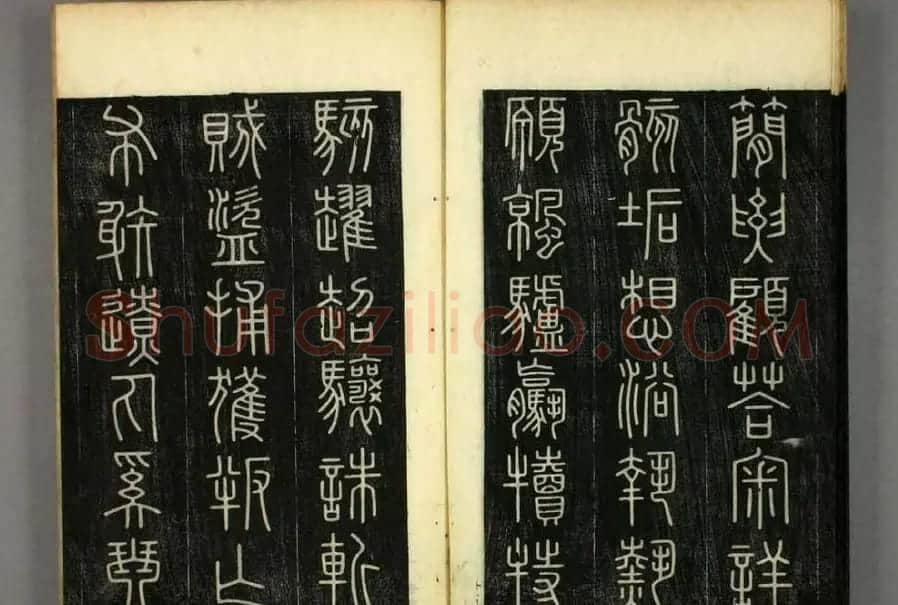 簡要顧荅宷詳
骸垢想浴執熱
願涼驢驘犢特
駭趯超驤誅斬
賊盜捕獲叛亡
布射遼丸嵇琴
Shufaziliao.COM